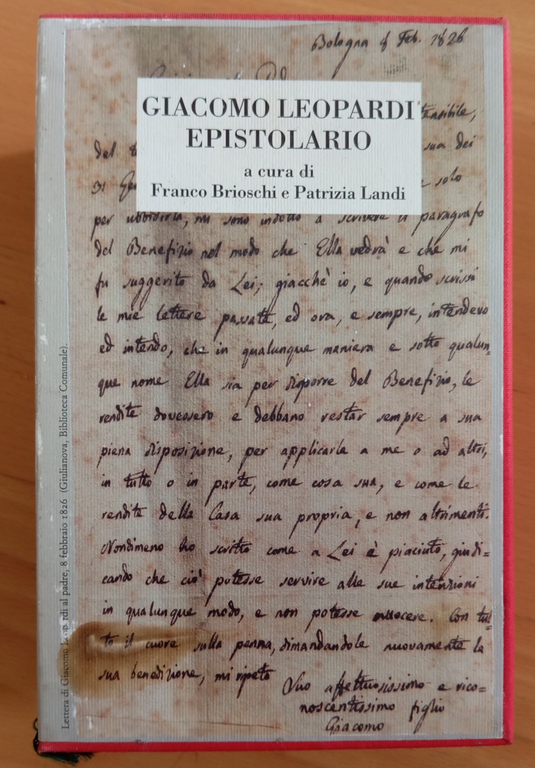 Bologna 8 Feb. 1826
GIACOMO LEOPARDI
EPISTOLARIO
a cura di
Franco Brioschi e Patrizia Landi
tensibile,
del
sua dei
31
solo
per ubbidirla, mi sono indotto a scrivere il paragrafo
del Benefizio nel modo che Ella vedrà e che mi
fu suggerito da Lei; giacchè io, e quando scrissi
le mie lettere passate, ed ora, e sempre, intendevo
ed intendo, che in qualunque maniera e sotto qualun,
que nome Ella sia per disporre del Benefizio, le
rendite dovessero e debbano restar sempre a sua
piena disposizione, per applicarle a me o ad altri,
in tutto o in parte, come cosa sua, e come le
rendite della Casa sua propria, e non altrimenti.
Nondimeno ho scritto come a Lei è piaciuto, giudi-
cando che ciò potesse servire alle sue intenzioni
in qualunque modo, e non potesse nuocere. Con tut-
to il cuore sulla penna, dimandandole nuovamente la
sua benedizione, mi ripeto
Suo affettuosissimo e rico-
noscentissimo figlio
Giacomo
Lettera di Giacomo Leopardi al padre, 8 febbraio 1826 (Giulianova, Biblioteca Comunale).